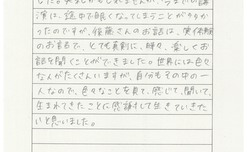 した。失礼かもしれませんが、今までの講
演は、途中で眠くなってしまうことが多か
ったのですが、佐藤さんのお話は、実体験
のお話で、とても真剣に、時々、楽しくお
話を聞くことができました。世界には色々
な人がたくさんいますが、自分もその中の一
人なので、色々なことを見て、感じて、聞いて、
生まれてきたことに感謝をして生きていきた
いと思いました。